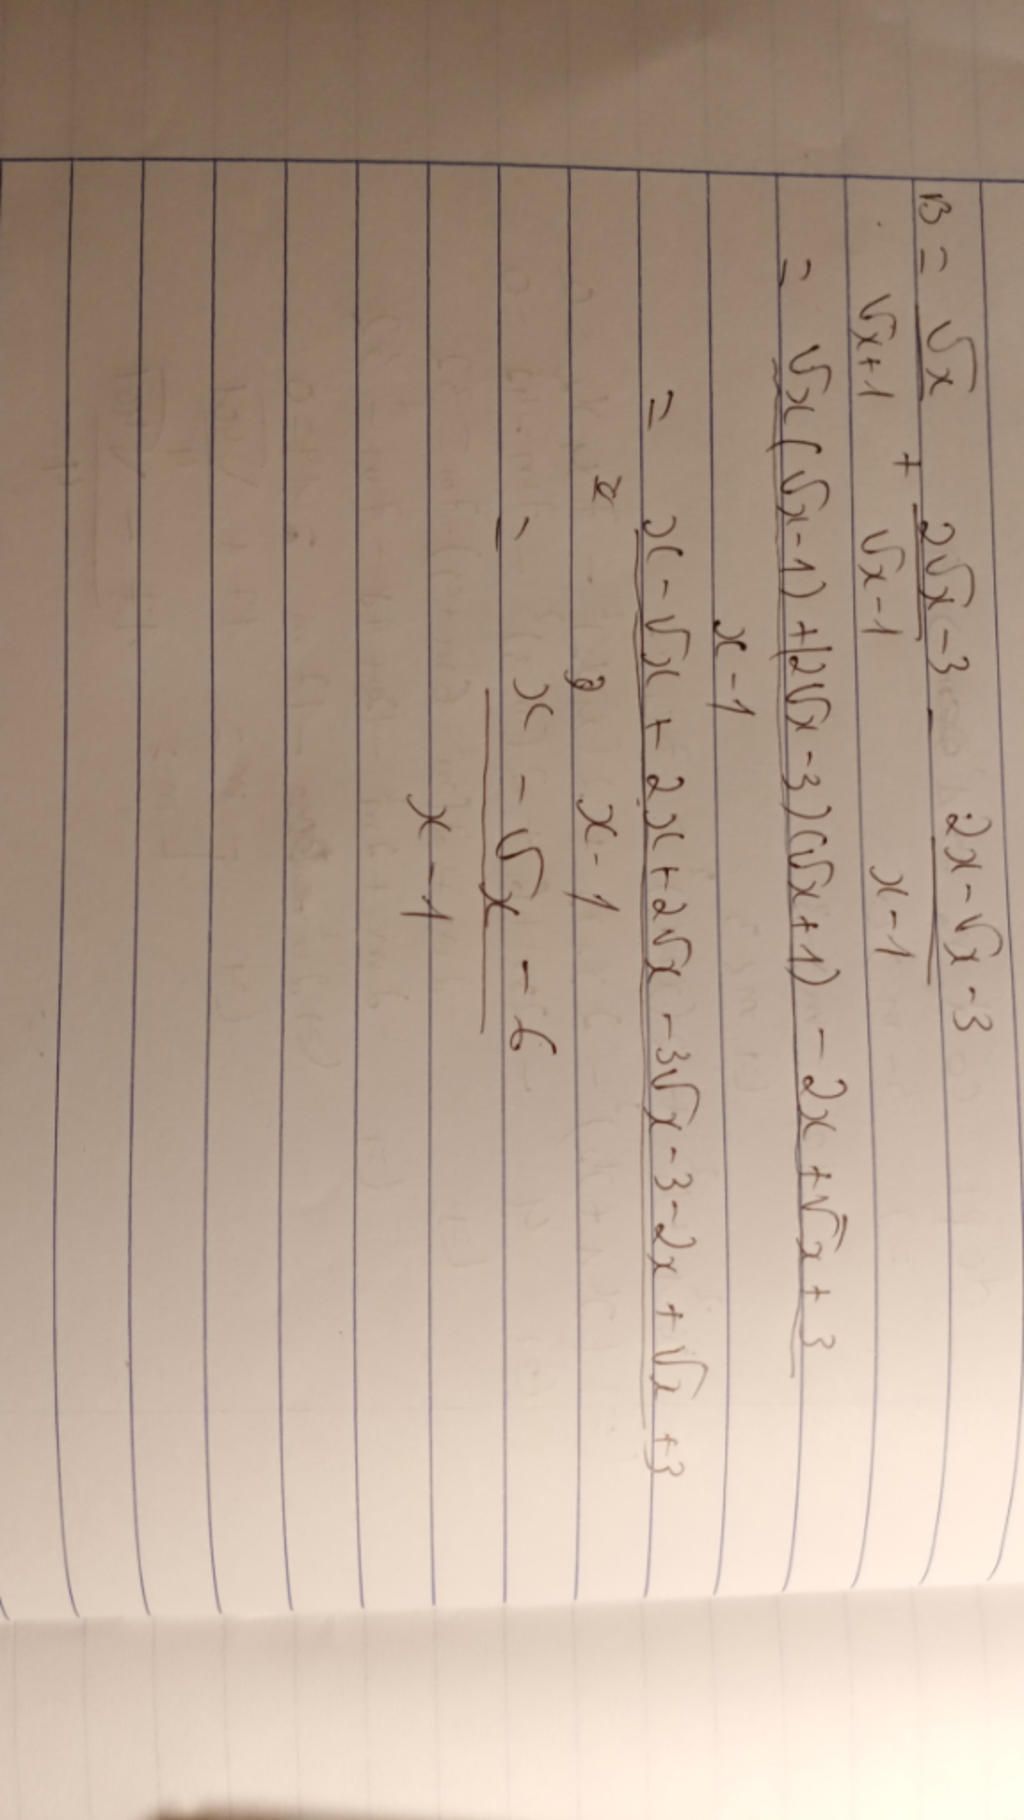 B = √x/√x+1 + 2√x-3/√x-1 - 2x-√x-3/x-1
= √x(√x-1)+(2√x-3)(√x+1)-2x+√x+3/x-1
= x-√x+2x+2√x-3√x-3-2x+√x+3/x-1
= x-√x-6/x-1